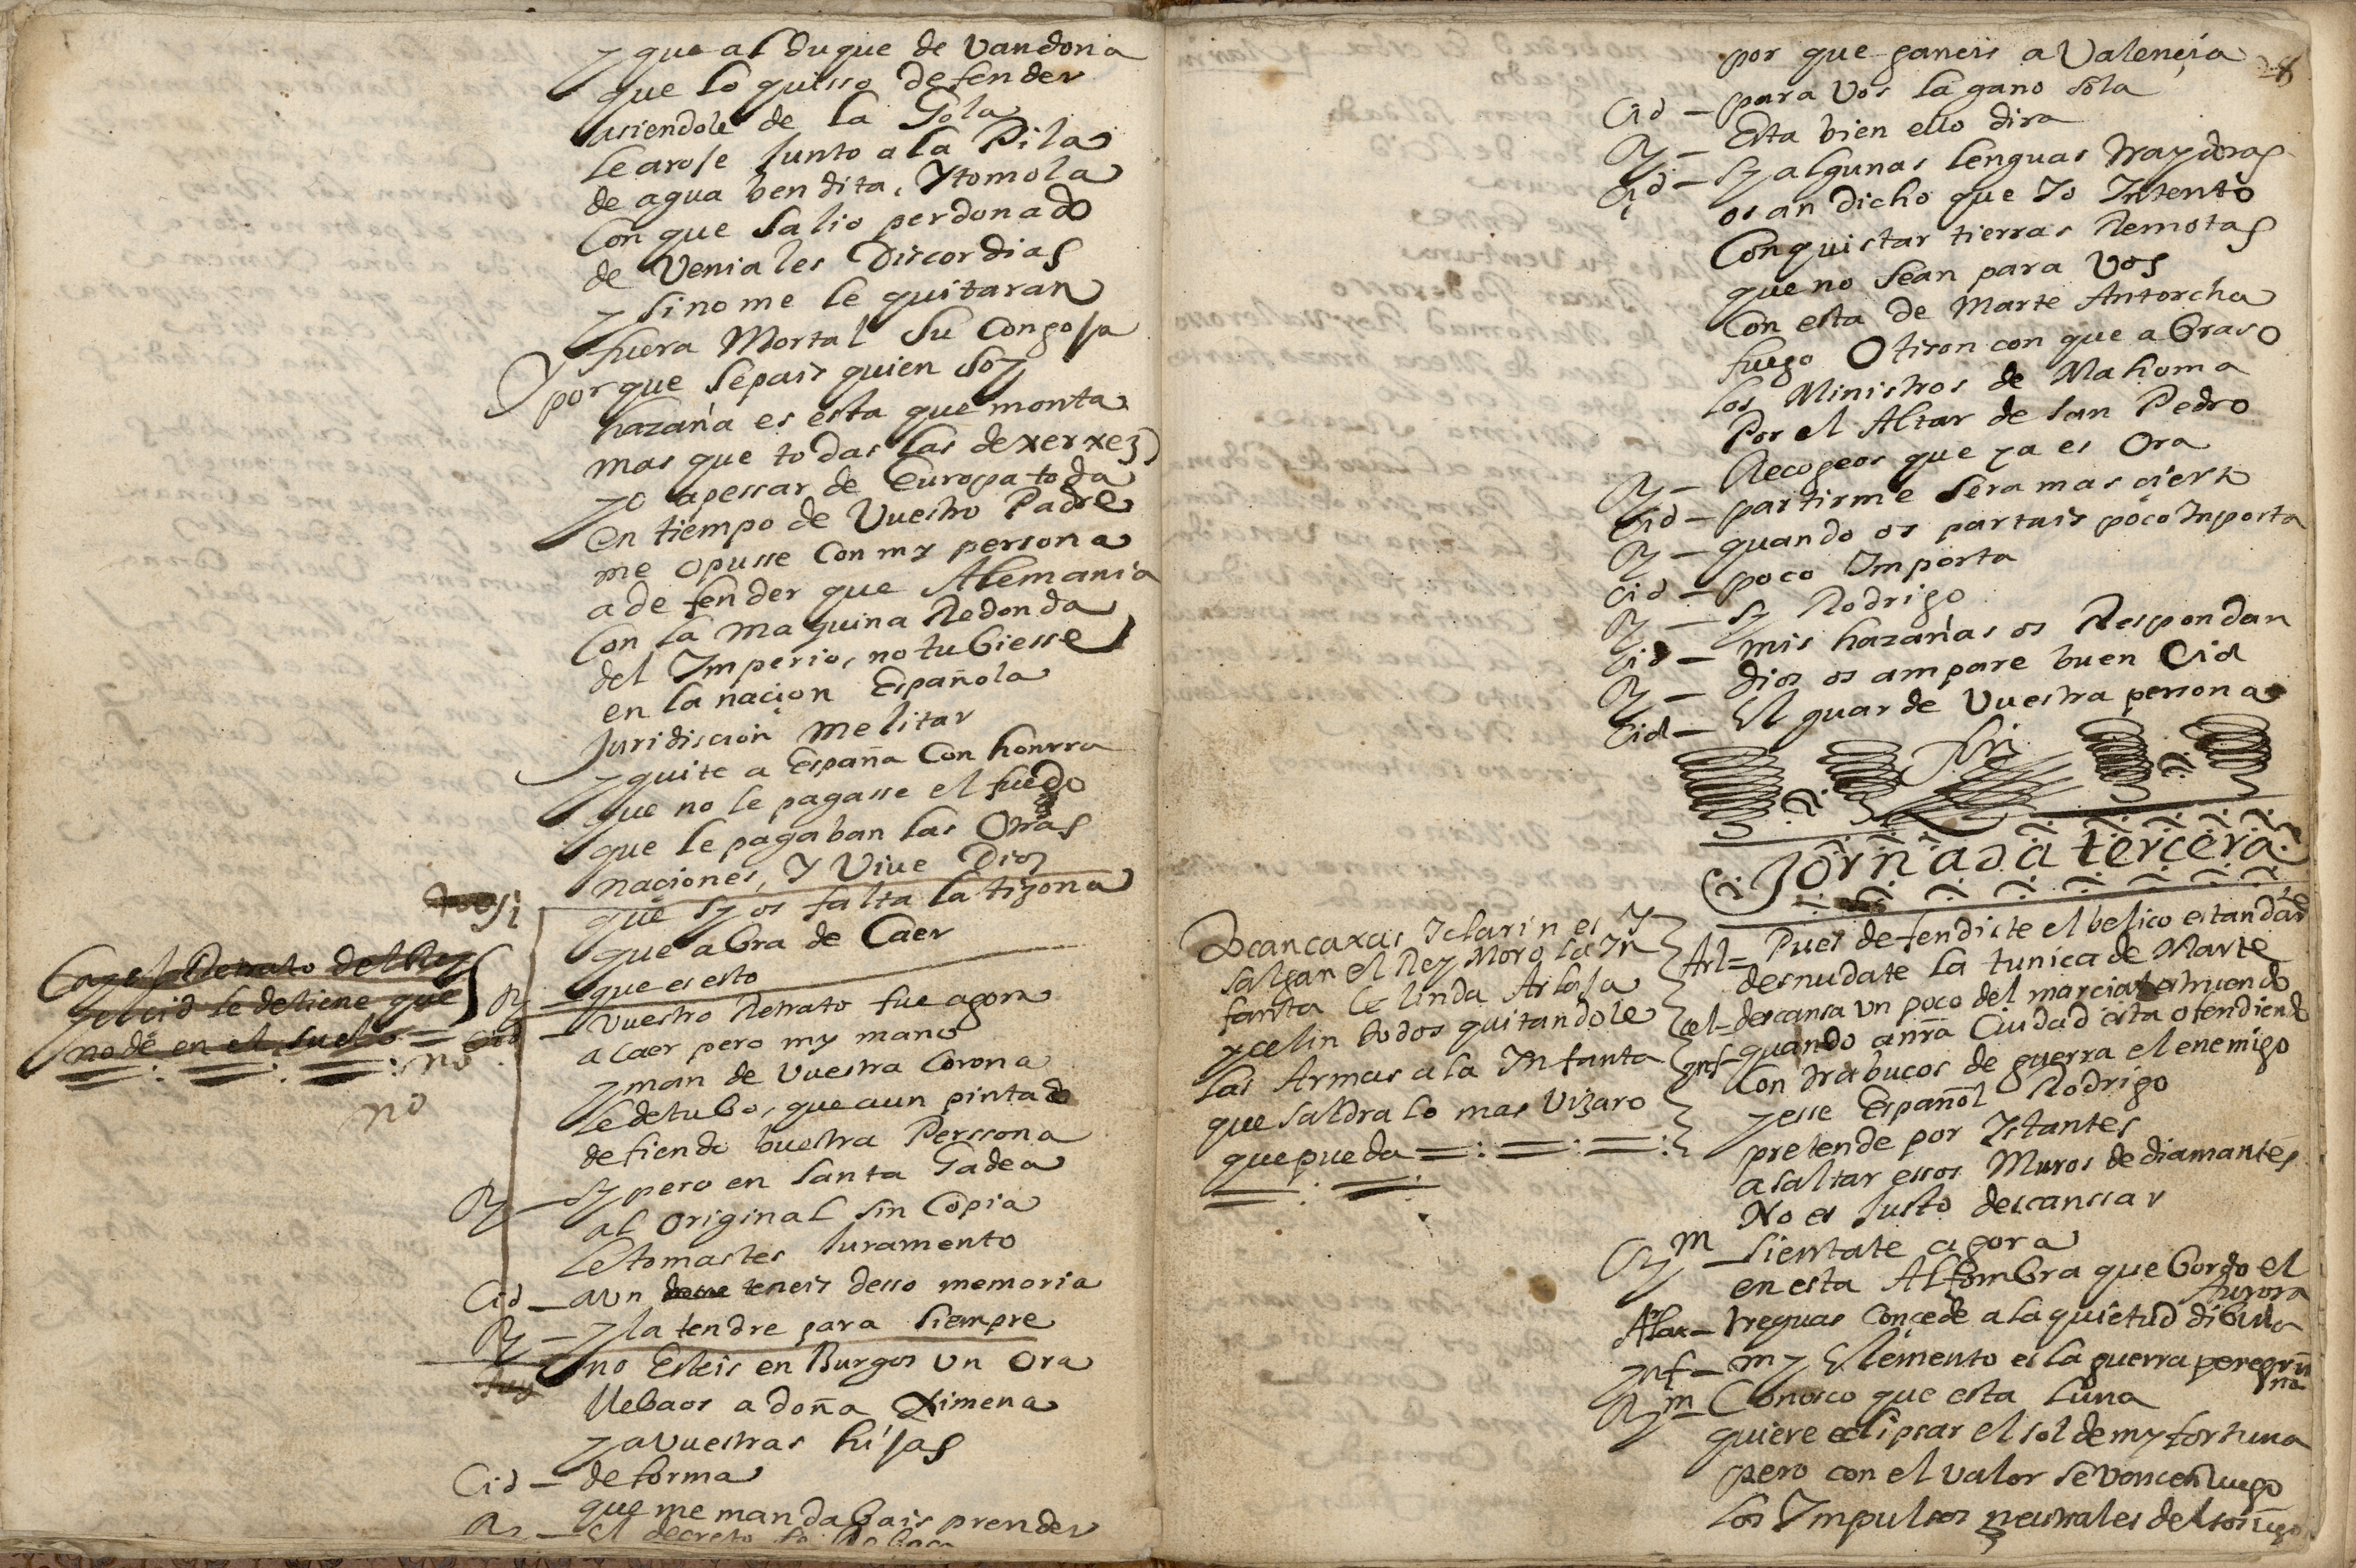 y que al duque de Vandoma
que lo quisso defender
asiendole de la Gola
le arose Junto a la Pila
de agua bendita, Y tomola
Con que Salio perdonado
de Veniales Discordias
y Sinome le quitaran
fuera Mortal Su Congoja
Y porque Sepais quien Soy
hazaña es esta que monta
mas que todas las de xerxez
yo apessar de Europa toda
en tiempo de Vuestro Padre
me opusse Con my persona
a defender que Alemania
Con la maquina Redonda
del Imperio, no tubiesse
en la naçion Española
Juridiscion melitar
y quite a España Con honrra
que no le pagasse el fuedo
que le pagaban las Otras
naçiones, Y Vive Dios
que sy os falta la tizona
que abra de Caer
Ry — que es esto
Caye el Retrato del Rey
y el cid le detiene que
no dé en el suelo
no
no
Cid — Vuestro Retrato fue agora
a Caer pero my mano
yman de Vuestra Corona
le detubo, que aun pintado
defiendo buestra Perssona
Ry — Sy pero en Santa Gadea
al original sin Copia
le tomastes Juramento
Cid — aun teneis desso memoria
Ry — y la tendre para Siempre
no Esteis en Burgos un Ora
llebaos a doña Ximena
y a Vuestras hijas
Cid — de forma
que me mandabais prender
28
por que ganeis a Valençia
Cid — para Vos la gano sola
Ry — Esta bien ello dira
Cid — Sy algunas lenguas traydoras
os an dicho que Yo Intento
Conquistar tierras Remotas
que no Sean para Vos
Con esta de Marte Antorcha
fuego O tison con que abraso
los Ministros de Mahoma
Por el Altar de San Pedro
Ry — Recogeos que ya es Ora
Cid — partirme Sera mas çierto
Ry — quando os partais poco Inporta
Cid — poco Importa
Ry — Sy Rodrigo
Cid — mis hazañas os Respondan
Ry — Dios os ampare buen Cid
Cid — El guarde Vuestra persona
fin
Jornada tercera
Y
salgan el Rey Moro la In
fanta Celinda Arlaja
y celin todos quitandole
las Armas a la Infanta
que Saldra lo mas Vizaro
que pueda
Arl= Pues defendiste el belico estandar
desnudate la tunica de Marte
cel= descansa un poco del marcial estruendo
ynf— quando a nra Ciudad esta ofendiendo
Con trabucos de guerra el enemigo
y esse Español Rodrigo
pretende por Istantes
asaltar essos Muros de diamantes
No es Justo descanssar
Ry m — Sientate agora
en esta Alfombra que bordo el
Aurora
Arla— treguas Conçede a la quietud dibina
ynf— my Elemento es la guerra peregri
na
Ry m— Conosco que esta luna
quiere eclipsar el sol de my fortuna
pero con el valor se vencen luego
los Impulsos neutrales del